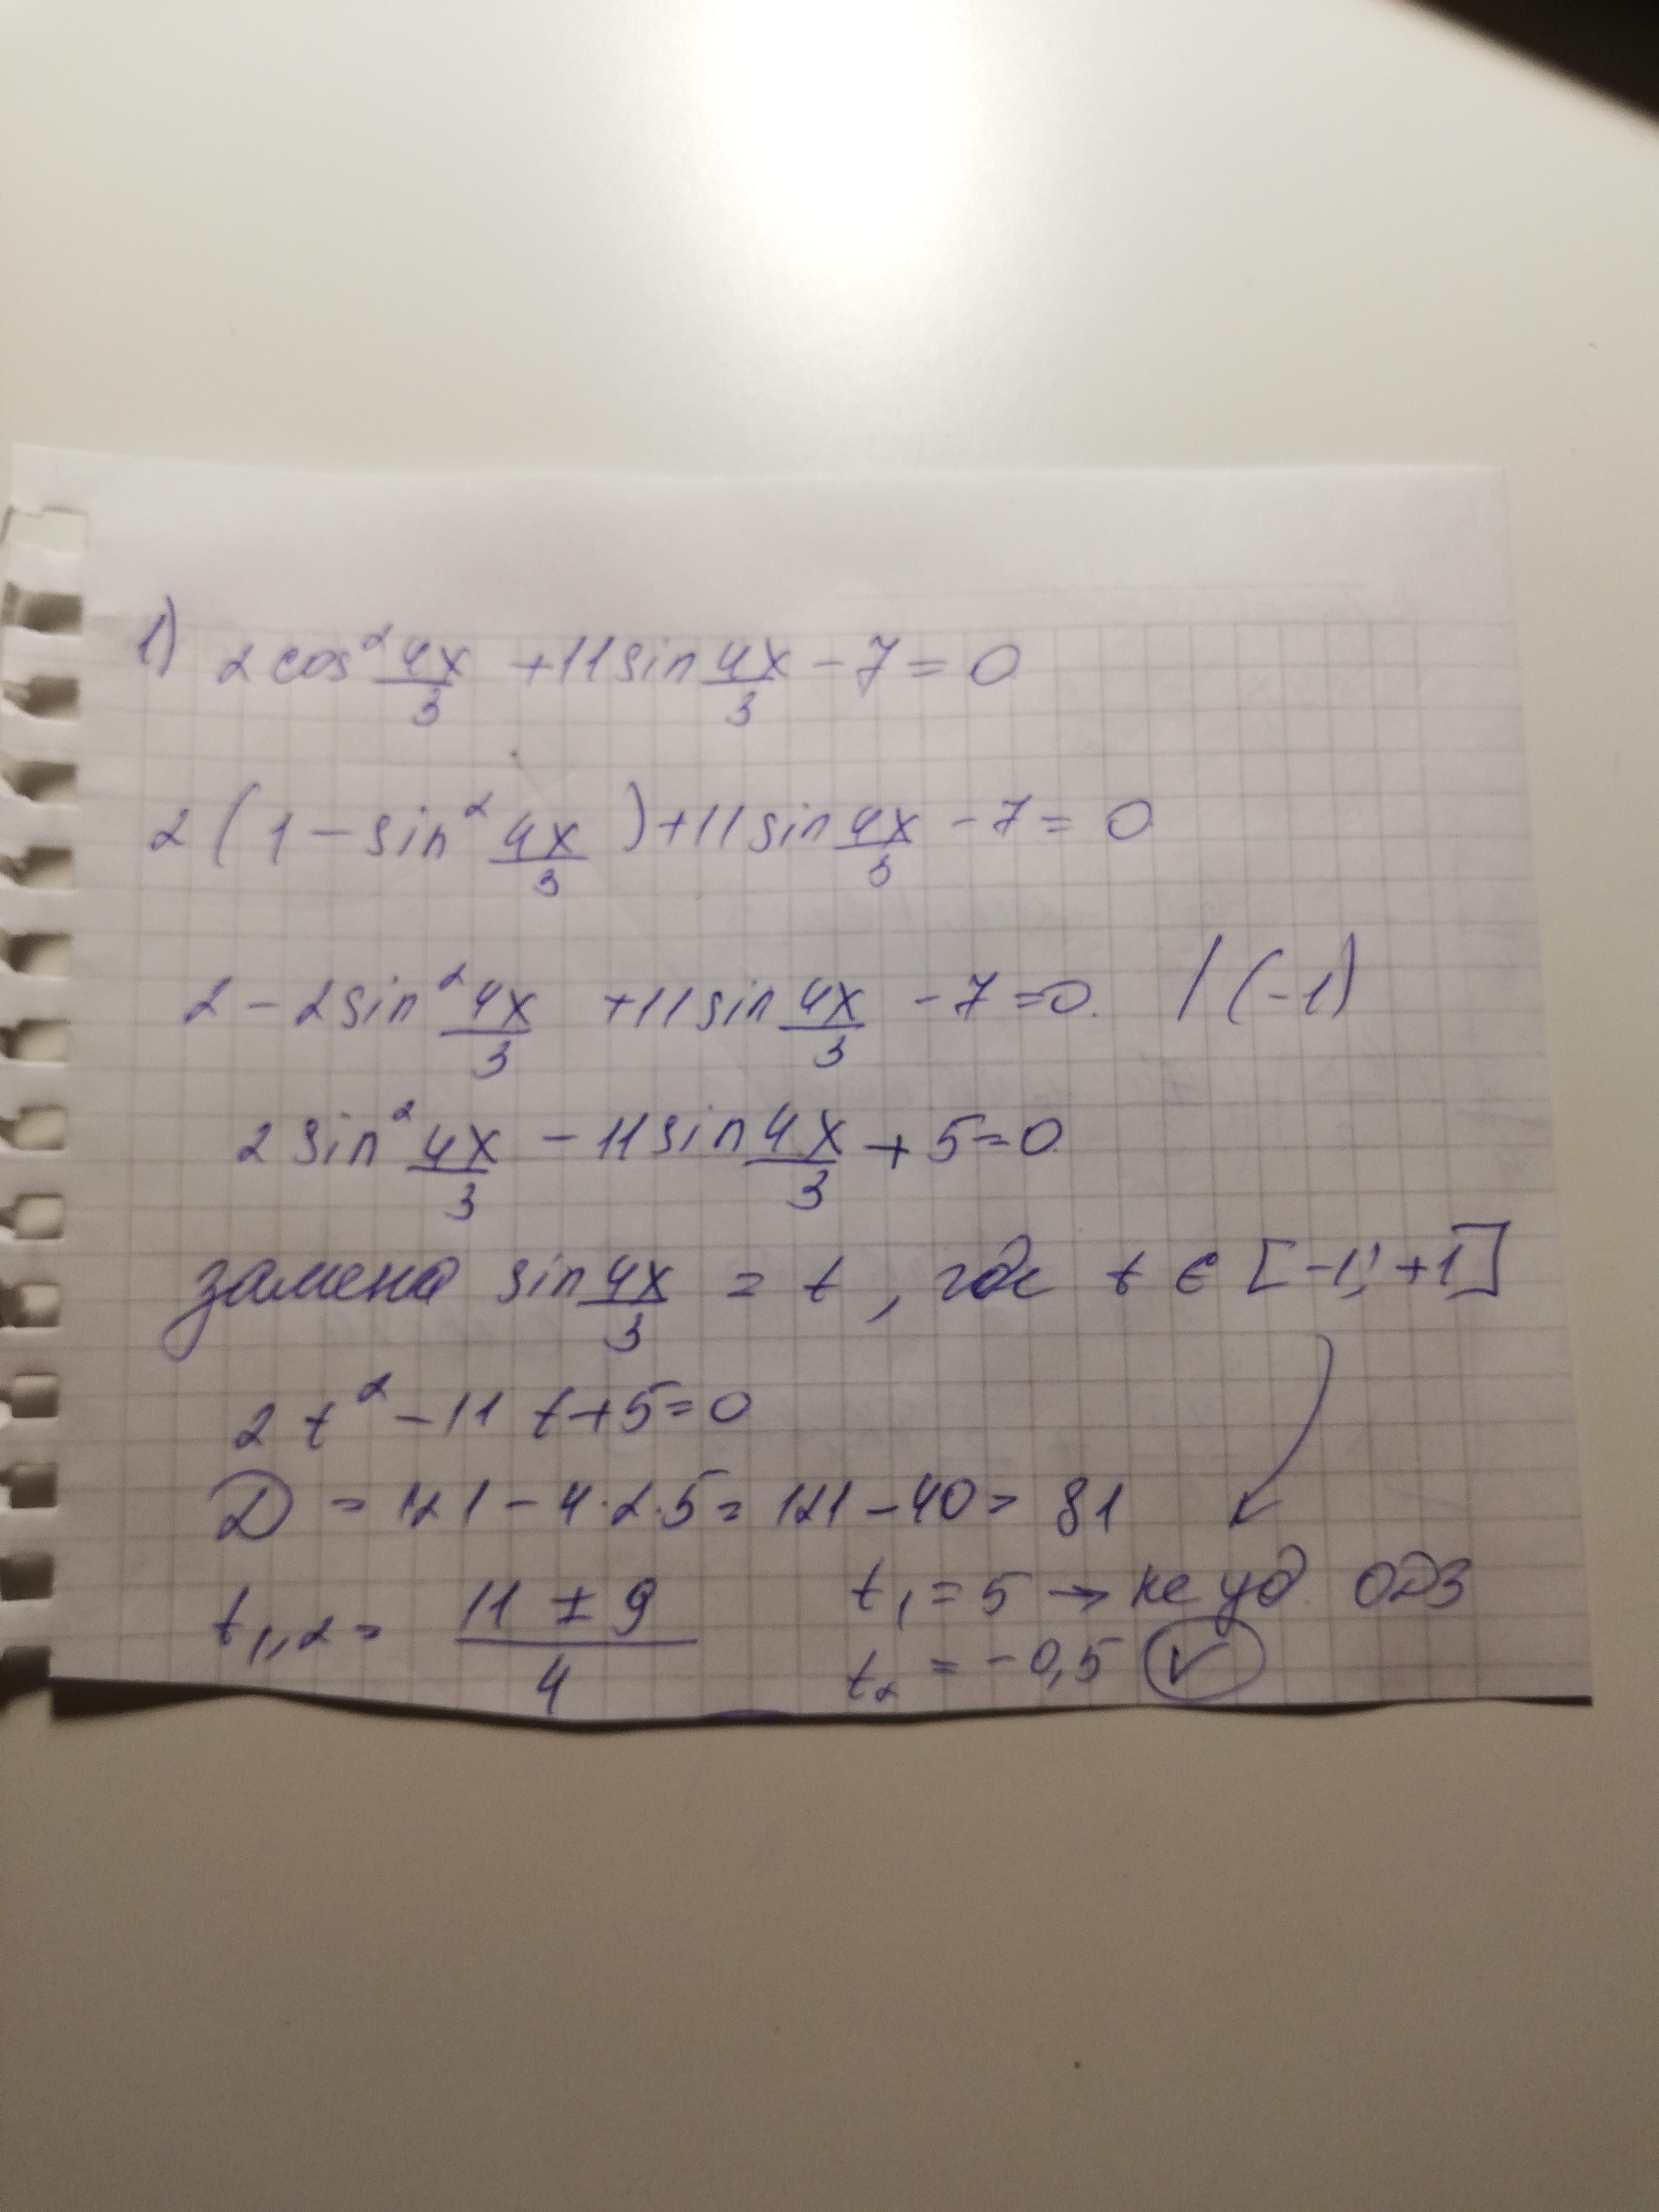 1) 2cos² 4x/3 + 11sin 4x/3 - 7 = 0
2(1 - sin² 4x/3) + 11sin 4x/3 - 7 = 0
2 - 2sin² 4x/3 + 11sin 4x/3 - 7 = 0. | (-1)
2sin² 4x/3 - 11sin 4x/3 + 5 = 0
замена sin 4x/3 = t, где t ∈ [-1; +1]
2t² - 11t + 5 = 0
D = 121 - 4·2·5 = 121 - 40 = 81
t₁,₂ = (11 ± 9)/4
t₁ = 5 → не уд. ОДЗ
t₂ = -0,5 ✓